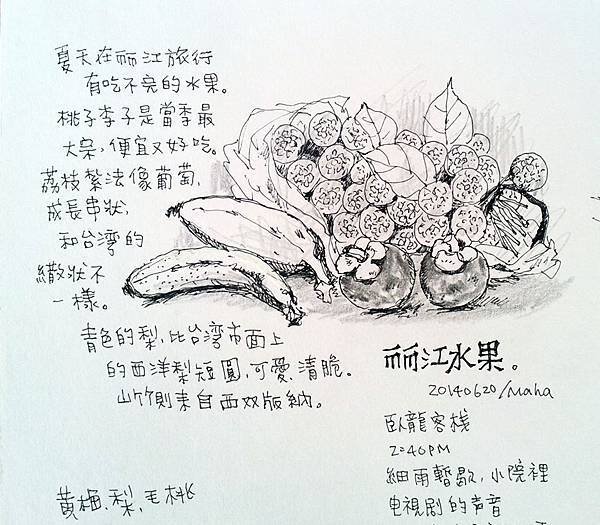 夏天在丽江旅行
有吃不完的水果。
桃子李子是當季最
大宗，便宜又好吃。
荔枝紮法像葡萄，
成長串狀，
和台湾的
繖狀不
一樣。
青色的梨，比台湾市面上
的西洋梨短圓，可愛、清脆。
山竹則来自西双版納。
丽江水果。
20140620/Maha
臥龍客栈
2:40PM
細雨暫歇，小院裡
电視剧的声音
黄梅、梨、毛桃